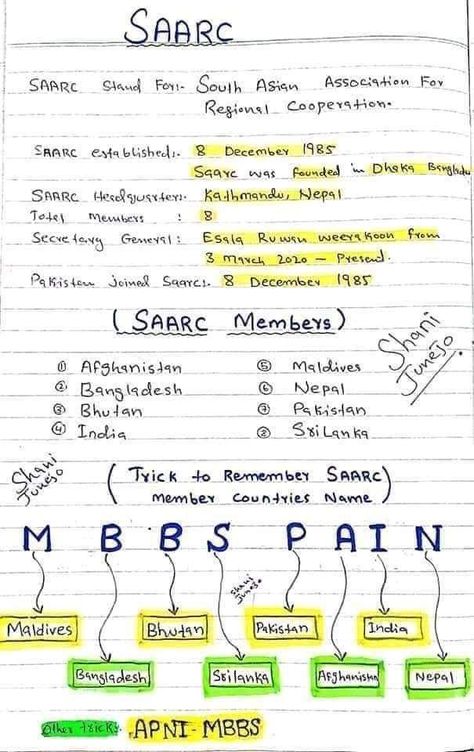 SAARC
SAARC Stand For:- South Asian Association For
Regional Cooperation.
SAARC established:- 8 December 1985
Saarc was founded in Dhaka Bangladesh
SAARC Headquarter:- Kathmandu, Nepal
Total Members : 8
Secretary General : Esala Ruwan weerakoon from
3 march 2020 – Present.
Pakistan joined Saarc:- 8 December 1985
(SAARC Members)
① Afghanistan
② Bangladesh
③ Bhutan
④ India
⑤ Maldives
⑥ Nepal
⑦ Pakistan
⑧ SriLanka
Shani
Junejo
Shani
Junejo
(Trick to Remember SAARC)
member countries Name
M B B S P A I N
Shani
Junejo
Maldives Bhutan Pakistan India
Bangladesh Srilanka Afghanistan Nepal
Other Trick:- APNI-MBBS